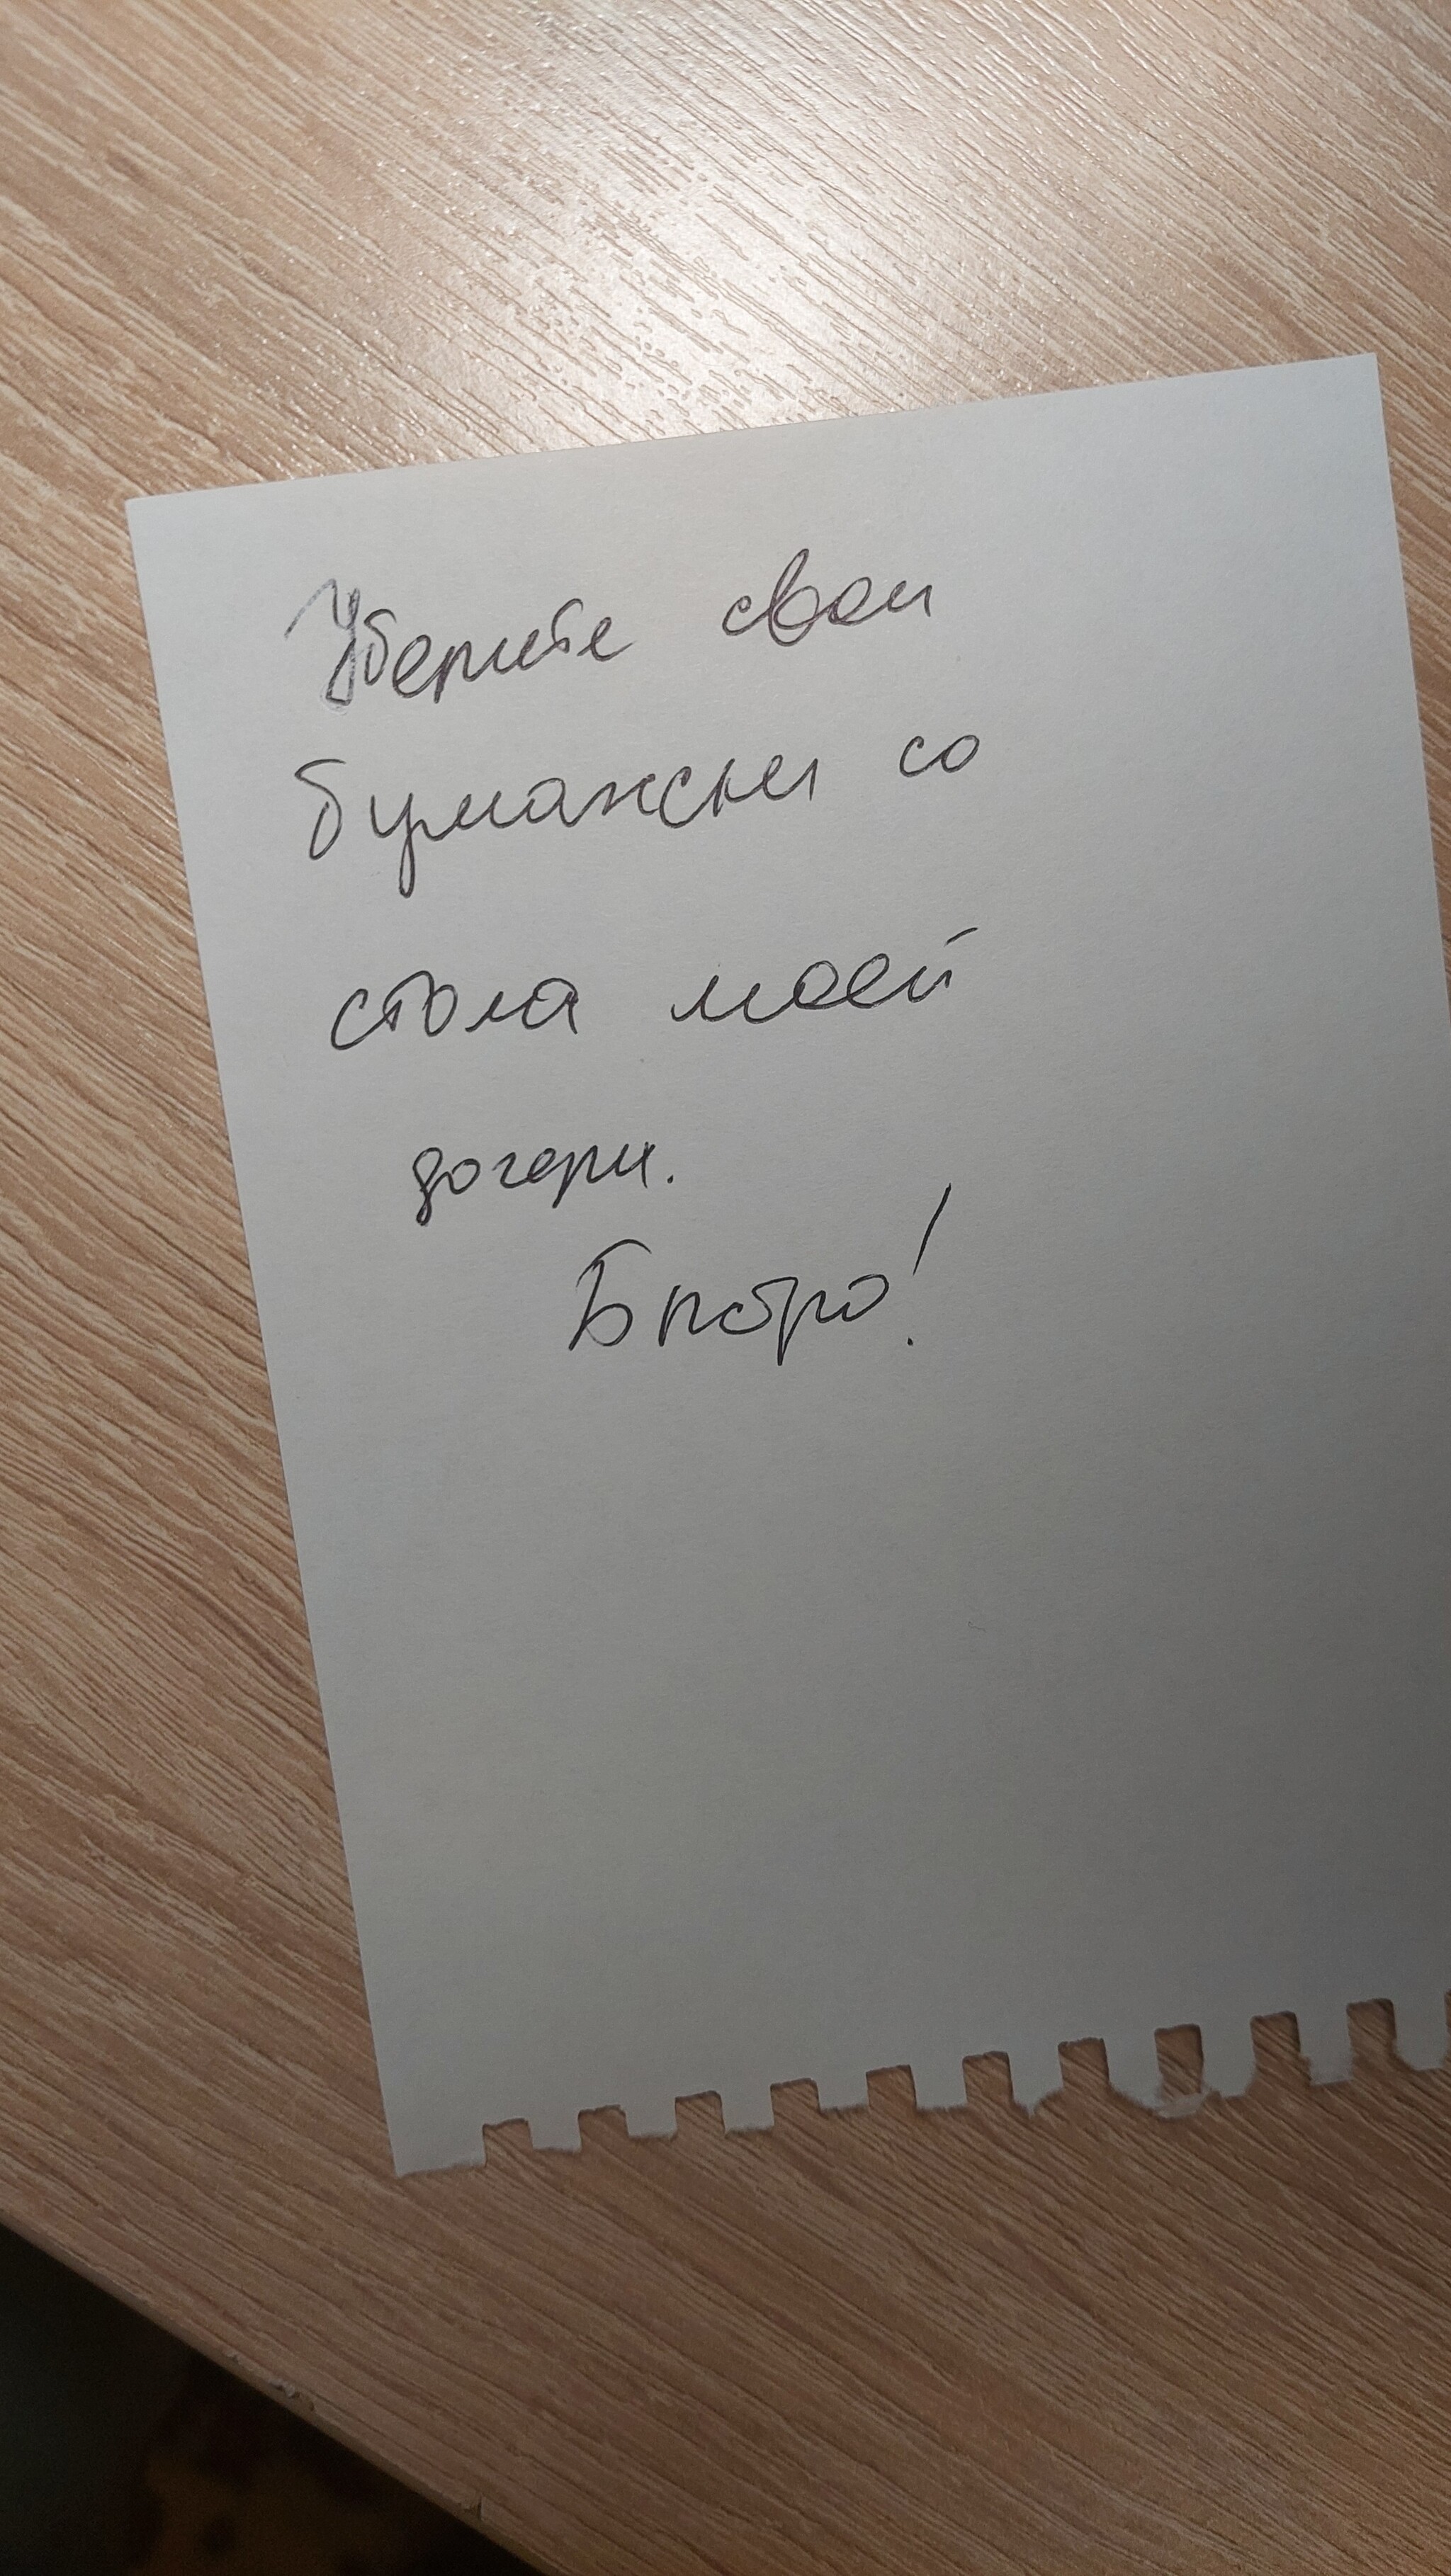 Уберите свои
бумажки со
стола моей
дочери.
Быстро!